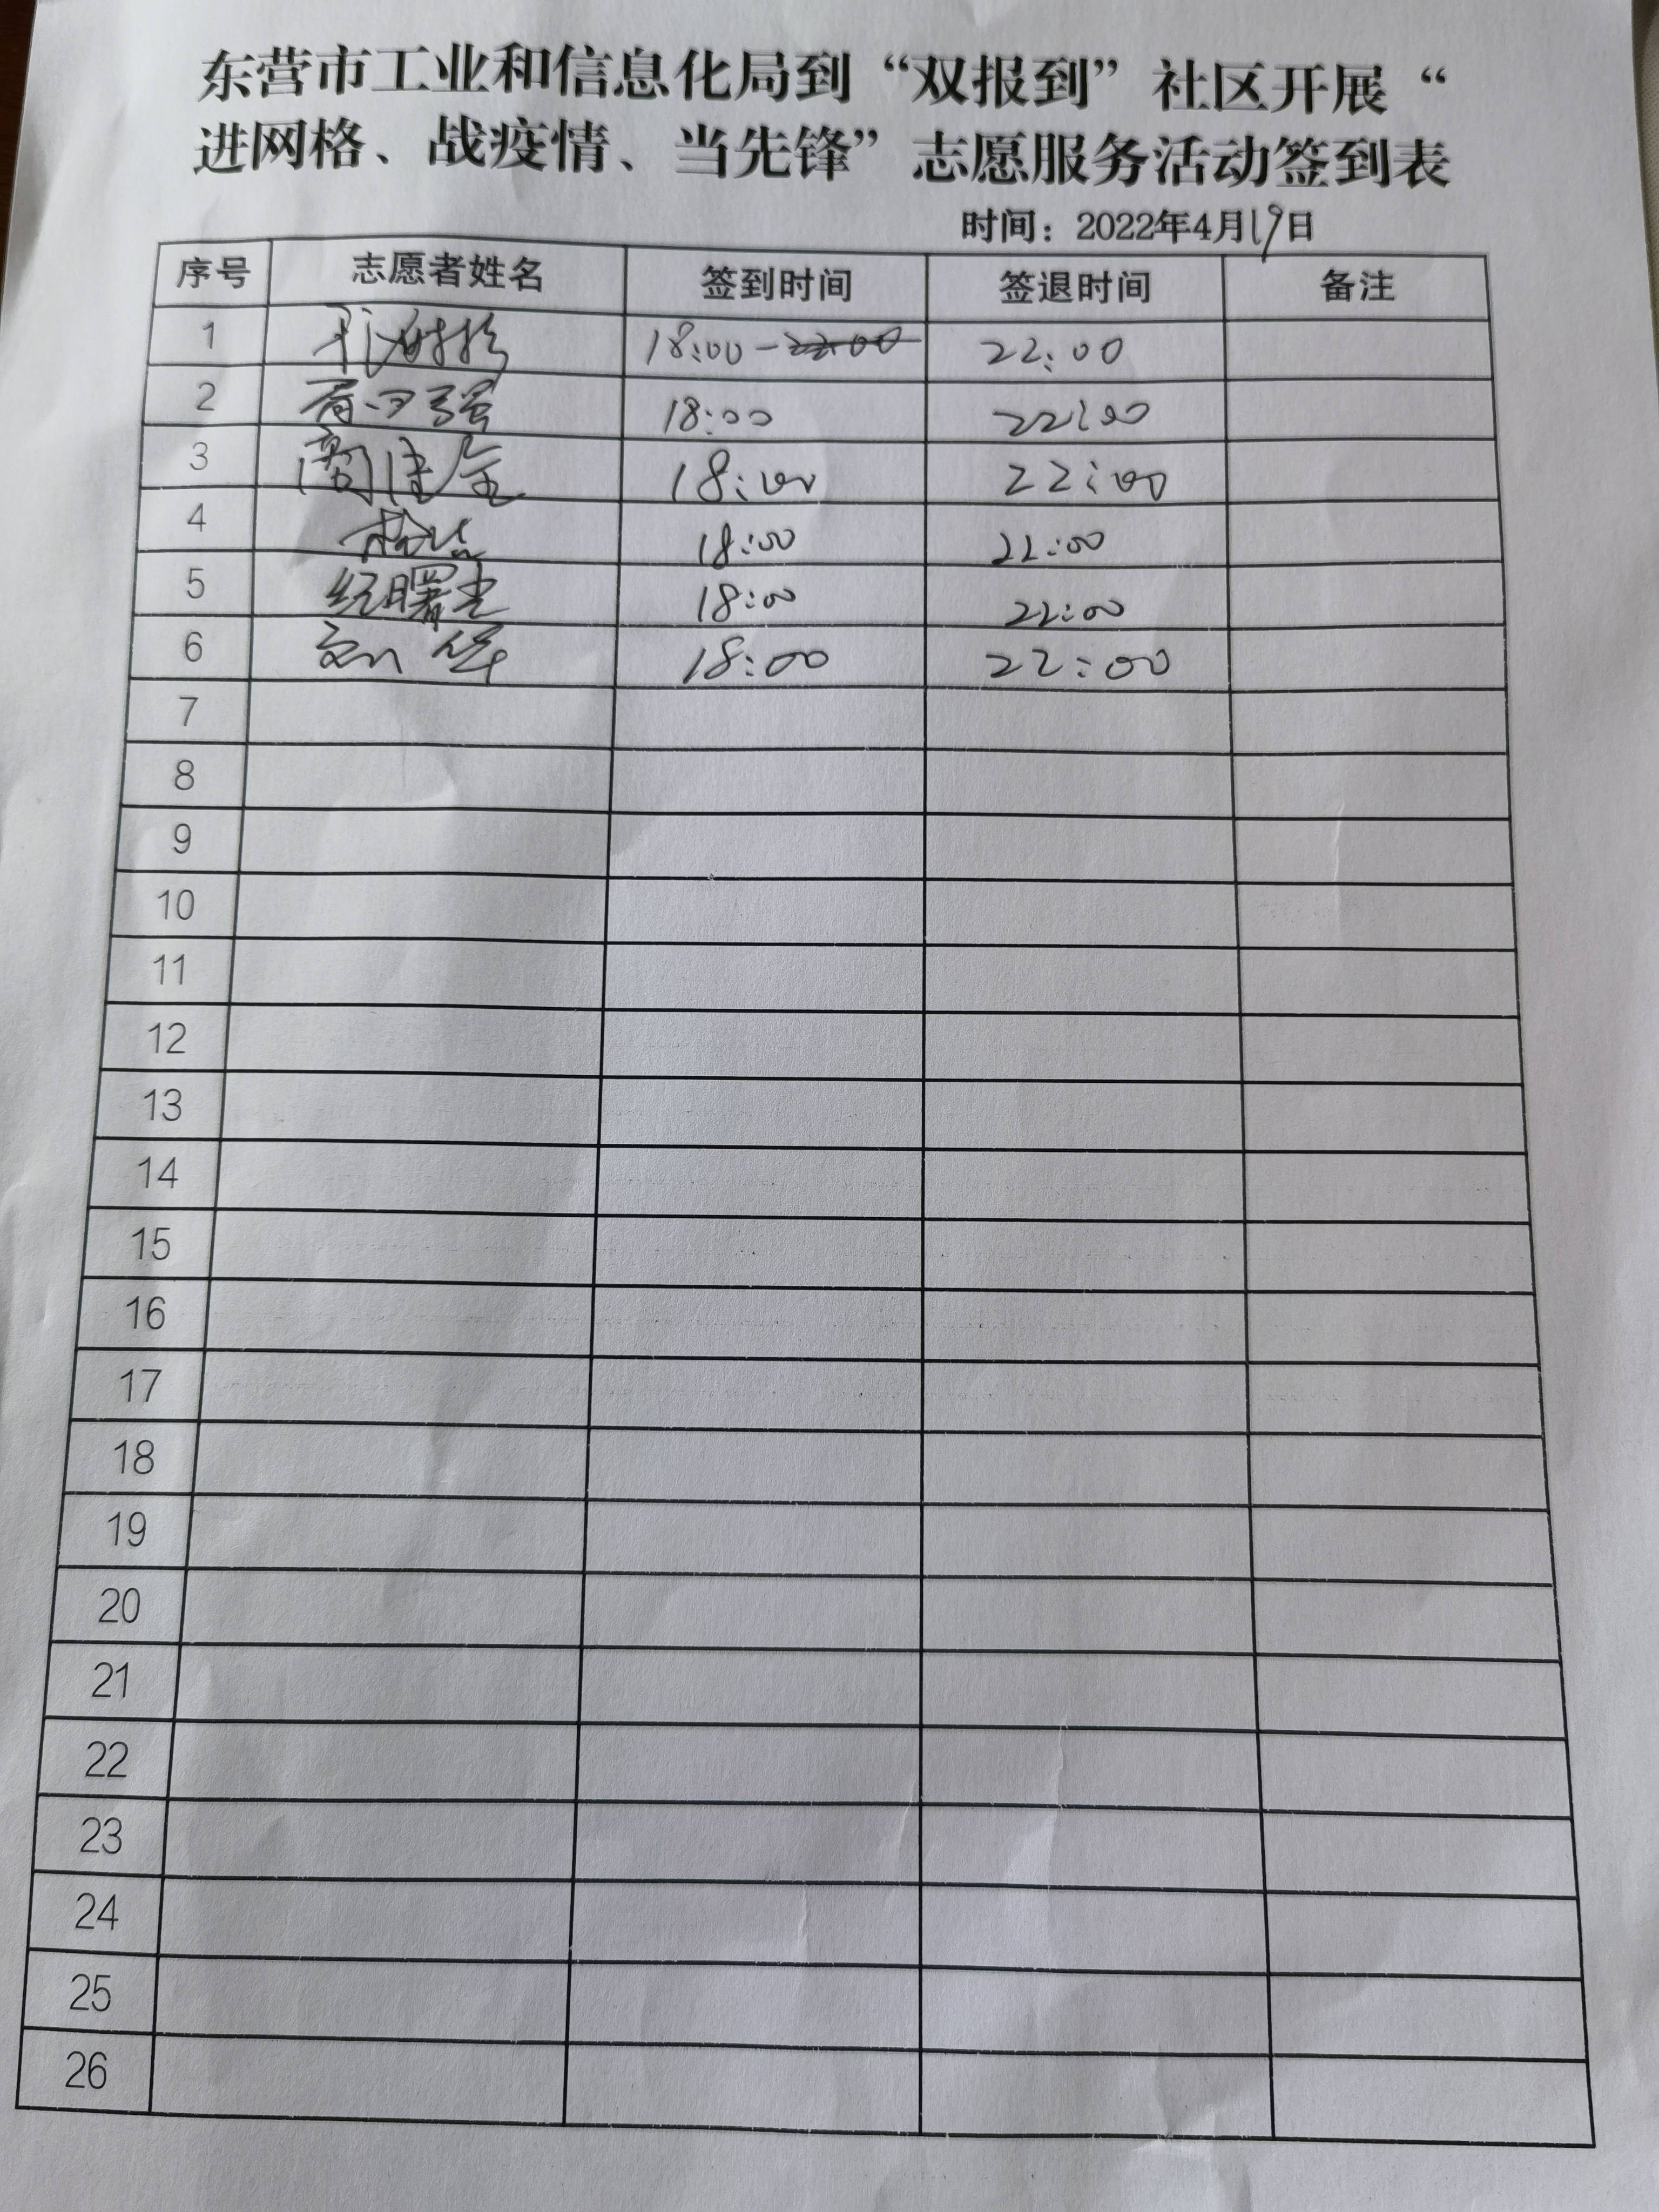 东营市工业和信息化局到“双报到”社区开展“
进网格、战疫情、当先锋”志愿服务活动签到表
时间：2022年4月19日
序号 志愿者姓名 签到时间 签退时间 备注
1 18:00-22:00 22:00
2 18:00 22:00
3 18:00 22:00
4 18:00 22:00
5 纪曙光 18:00 22:00
6 刘华 18:00 22:00
7
8
9
10
11
12
13
14
15
16
17
18
19
20
21
22
23
24
25
26